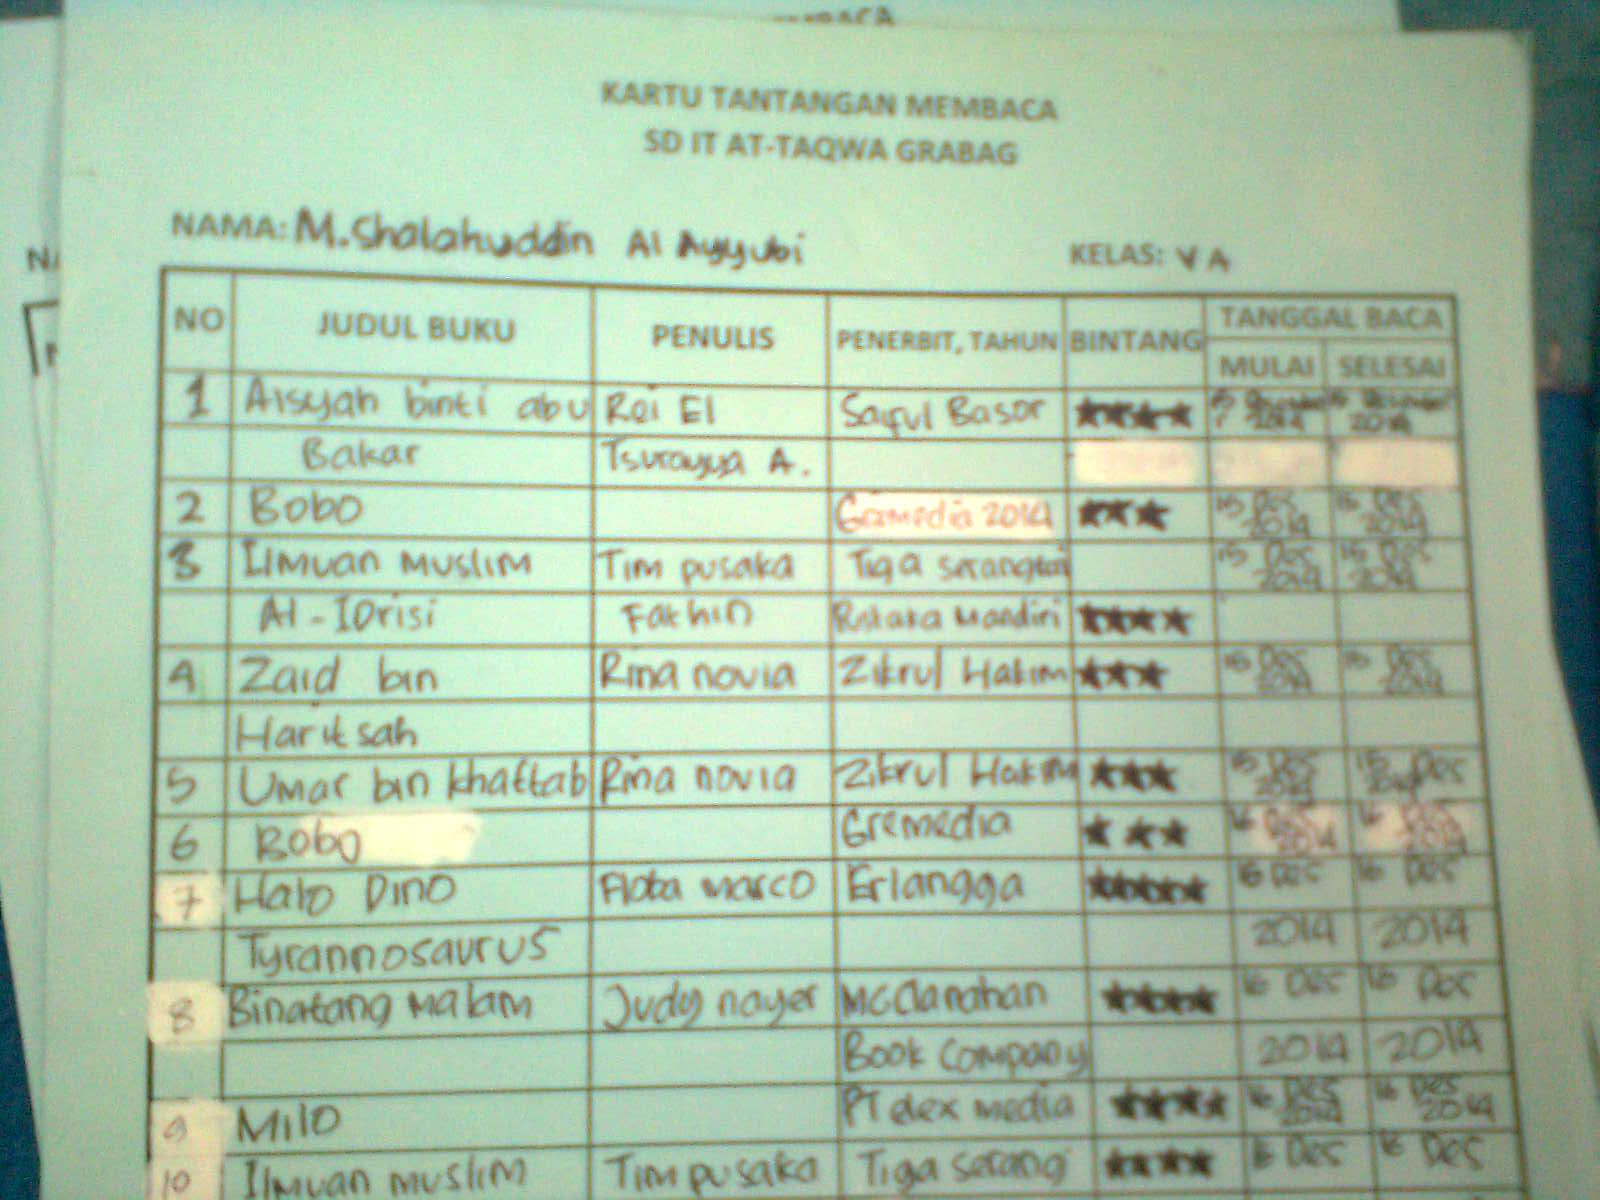 KARTU TANTANGAN MEMBACA
SD IT AT-TAQWA GRABAG
NAMA: M. Shalahuddin Al Ayyubi KELAS: V A
NO JUDUL BUKU PENULIS PENERBIT, TAHUN BINTANG TANGGAL BACA
MULAI SELESAI
1 Aisyah binti abu Rei El Saiful Basor ★★★★ 2014 2014
Bakar Tsurayya A.
2 Bobo Gramedia 2014 ★★★ 15 Des 2014 16 Des 2014
3 Ilmuan Muslim Tim pusaka Tiga serangkai 15 Des 2014 15 Des 2014
Al-IDrisi Fathin Pustaka Mandiri ★★★★
4 Zaid bin Rina novia Zikrul Hakim ★★★ Des 2014 Des 2014
Haritsah
5 Umar bin khattab Rina novia Zikrul Hakim ★★★ 15 Des 2014 15 Des
6 Bobo Gremedia ★★★ 16 Des 2014 16 Des 2014
7 Halo Dino Flota marco Erlangga ★★★★★ 16 Des 16 Des
Tyrannosaurus 2014 2014
8 Binatang Malam Judy nayer McClanahan ★★★★ 16 Des 16 Des
Book Company 2014 2014
9 Milo PT elex media ★★★★ 16 Des 2014 16 Des 2014
10 Ilmuan muslim Tim pusaka Tiga serang ★★★★ 16 Des 16 Des